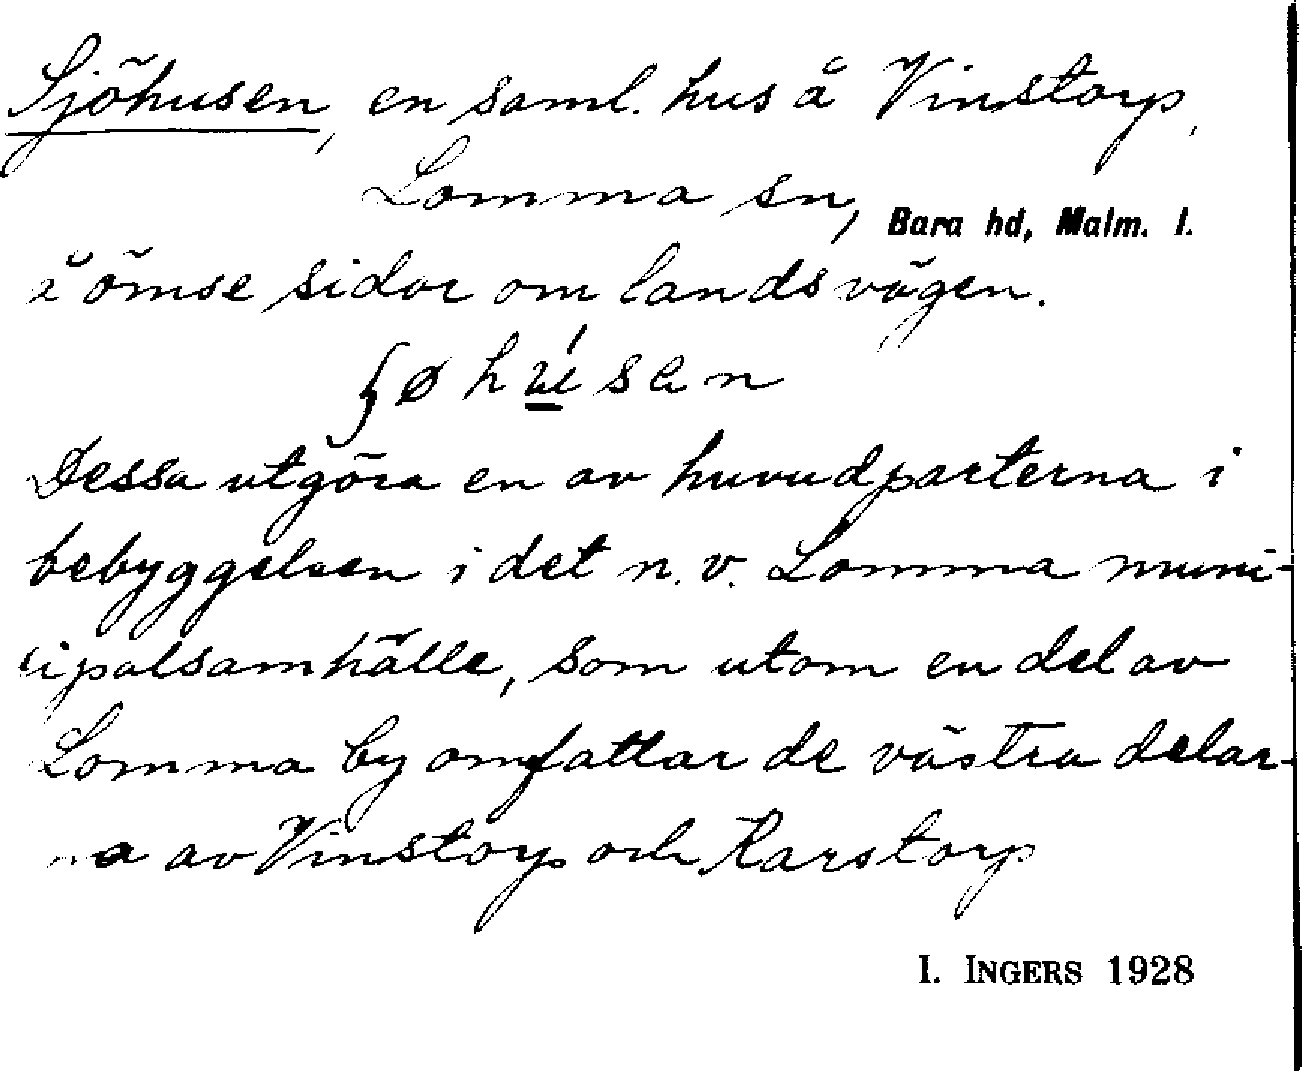 Sjöhusen, en saml. hus å Vinstorp,
Lomma sn, Bara hd, Malm. l.
å ömse sidor om landsvägen.
Dessa utgöra en av huvudparterna i
bebyggelsen i det n. v. Lomma muni-
cipalsamhälle, som utom en del av
Lomma by omfattar de västra delar-
na av Vinstorp och Karstorp
I. INGERS 1928